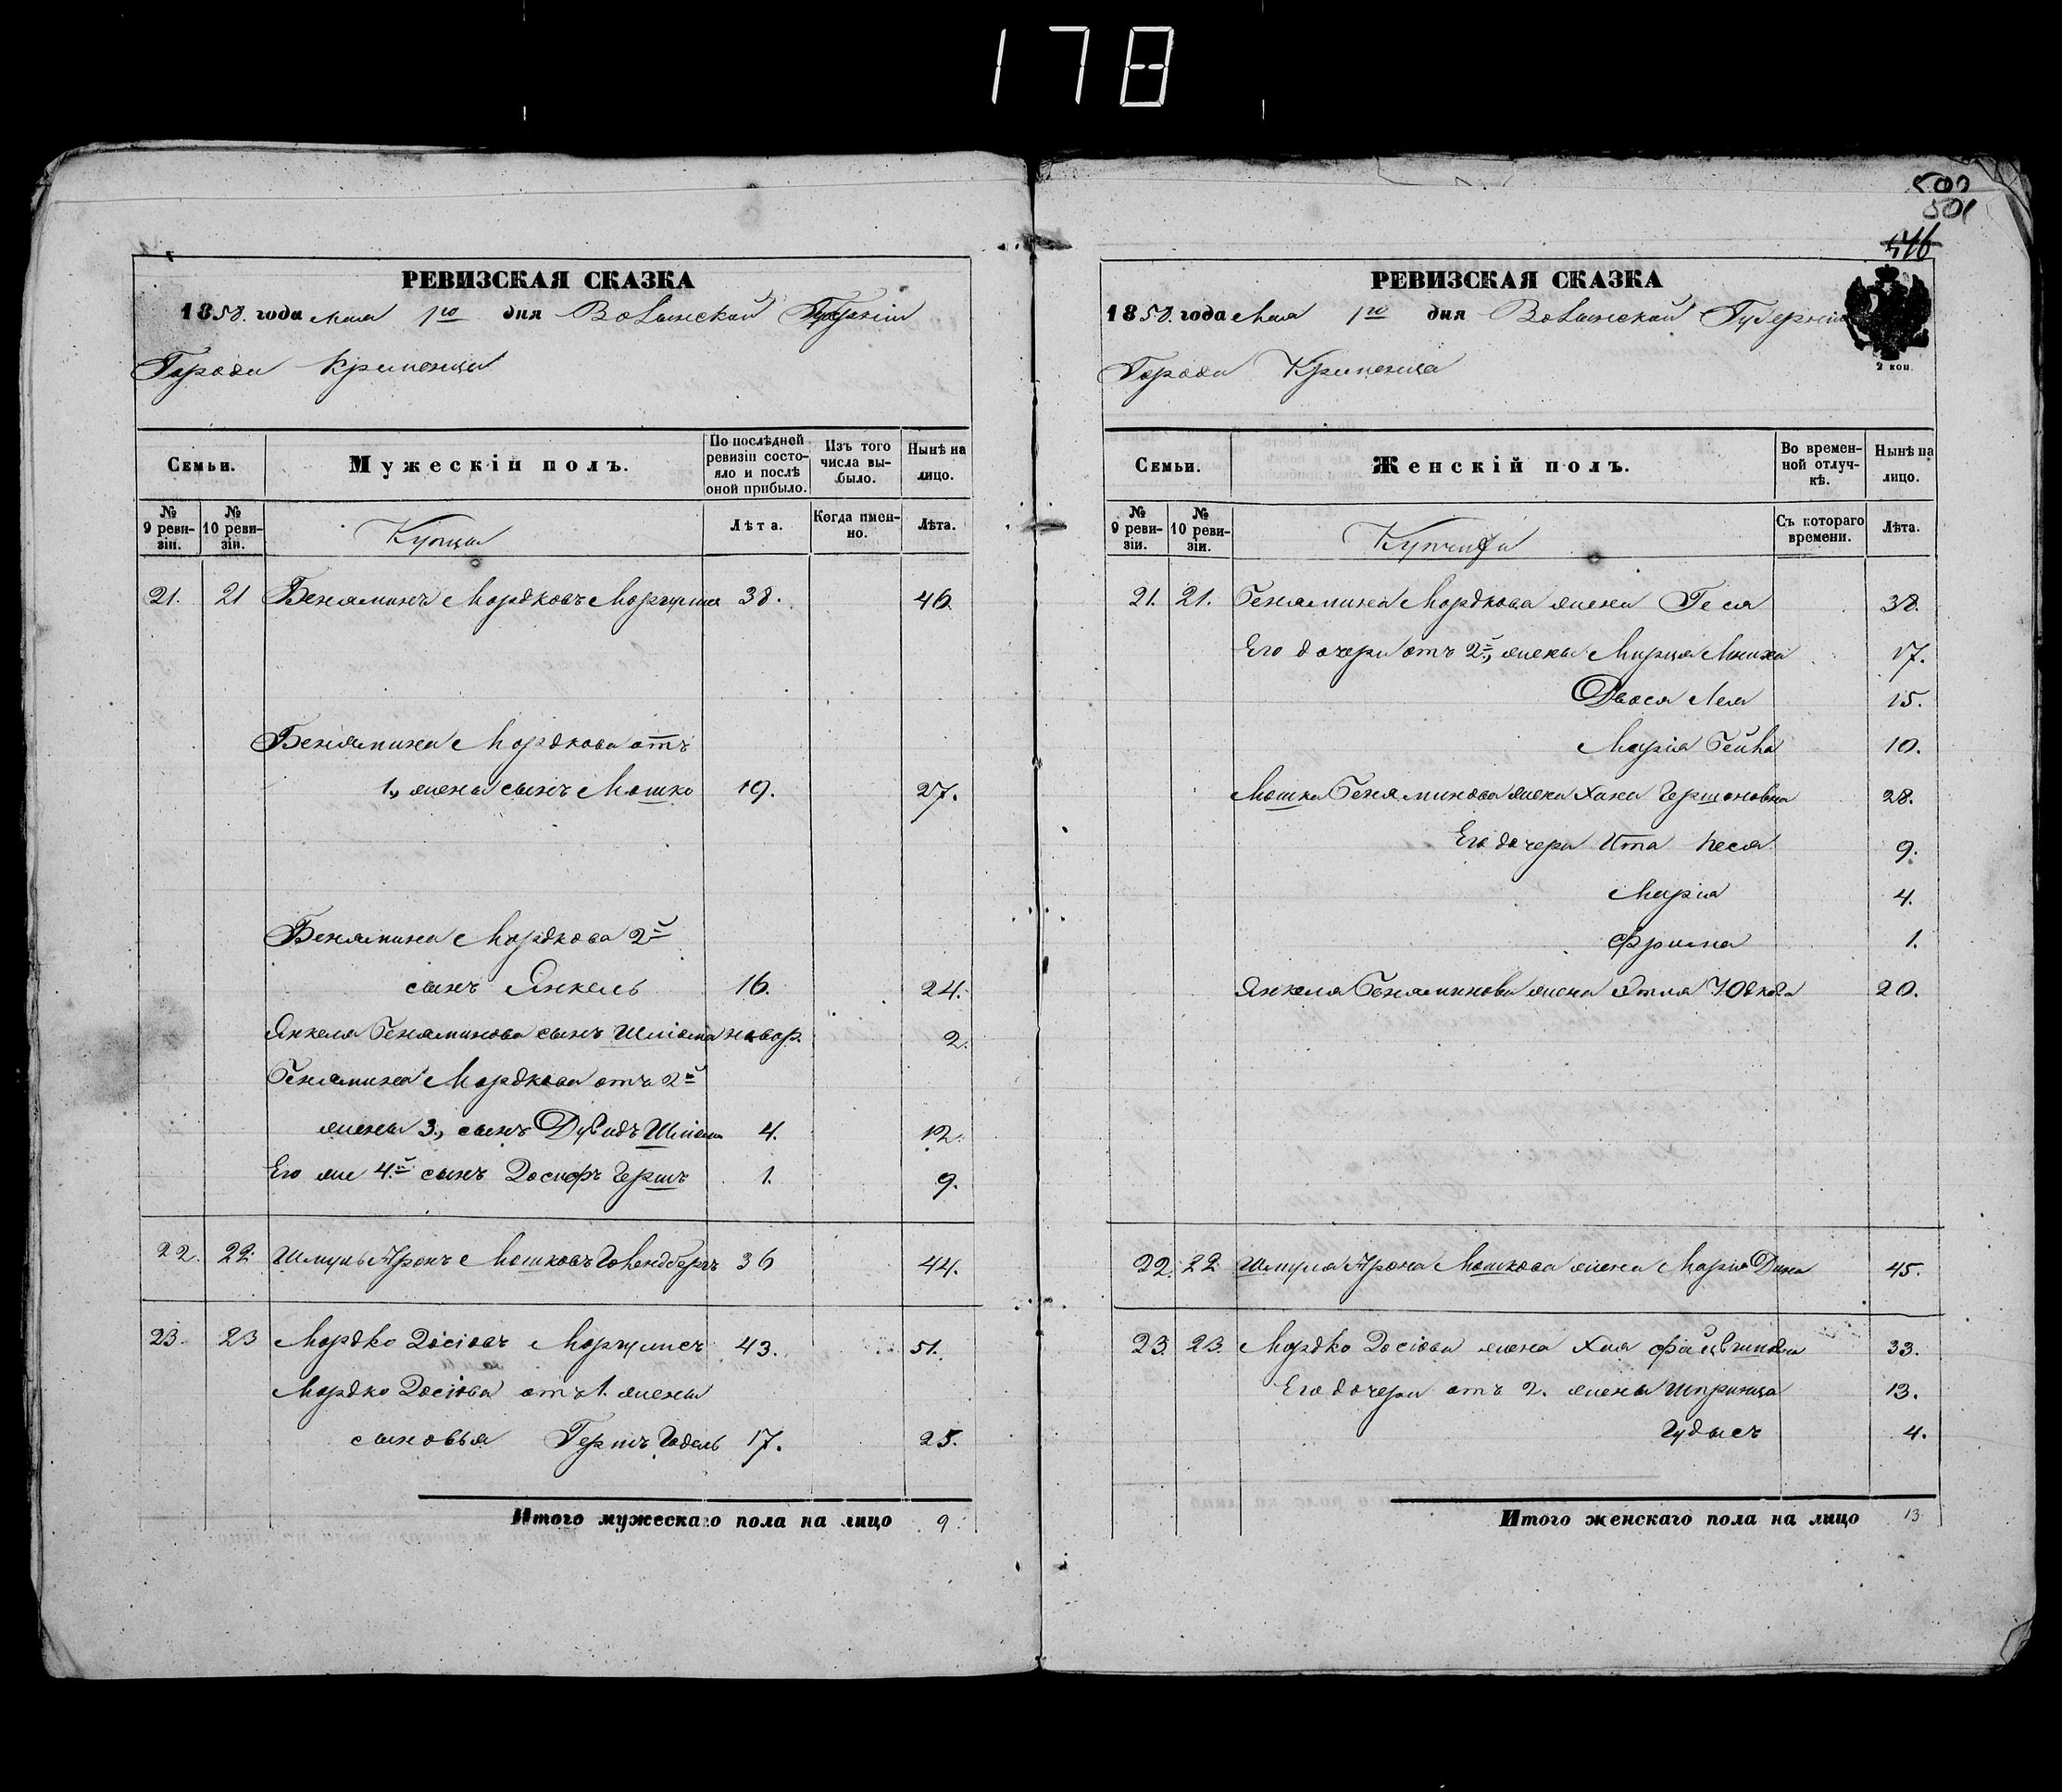 178
РЕВИЗСКАЯ СКАЗКА
1858. года Мая 1го дня Волынской Губерніи
Города Кременца
Семьи.
Мужескій полъ.
По послѣдней ревизіи состояло и послѣ оной прибыло.
Изъ того числа выбыло.
Нынѣ на лицо.
№ 9 ревизіи.
№ 10 ревизіи.
Купцы
Лѣта.
Когда именно.
Лѣта.
21. 21 Беняминъ Мордковъ Маргулис 38. 46.
Бенямина Мордкова отъ
1, жены сынъ Мошко 19. 27.
Бенямина Мордкова 2й
сынъ Янкель 16. 24.
Янкеля Беняминова сынъ Шліома новор. 2.
Бенямина Мордкова отъ 2й
жены 3, сынъ Дувидъ Шліома 4. 12.
Его же 4й сынъ Іосифъ Гершъ 1. 9.
22. 22. Шмуль Аронъ Мошковъ Гольдбергъ 36 44.
23. 23 Мордко Іосіовъ Маргулисъ 43. 51.
Мордко Іосіова отъ 1. жены
сыновья Гершъ Годель 17. 25.
Итого мужескаго пола на лицо 9.
500
501
516
РЕВИЗСКАЯ СКАЗКА
1858. года Мая 1го дня Волынской Губерніи
2 коп.
Города Кременца
Семьи.
Женскій полъ.
Во временной отлучкѣ.
Нынѣ на лицо.
№ 9 ревизіи.
№ 10 ревизіи.
Купчихи
Съ котораго времени.
Лѣта.
21. 21. Бенямина Мордкова жена Геся 38.
Его дочери отъ 2й, жены Мирця Мниха 17.
Двося Лея 15.
Марія Бейла 10.
Мошка Беняминова жена Хана Гершоновна 28.
Его дочери Ита Песя 9.
Марія 4.
Фрима 1.
Янкеля Беняминова жена Этля Юдкова 20.
22. 22. Шмуля Арона Мошкова жена Марія Дина 45.
23. 23. Мордко Іосіова жена Хая 33.
Его дочери отъ 2. жены Шпринца 13.
Гудысъ 4.
Итого женскаго пола на лицо 13